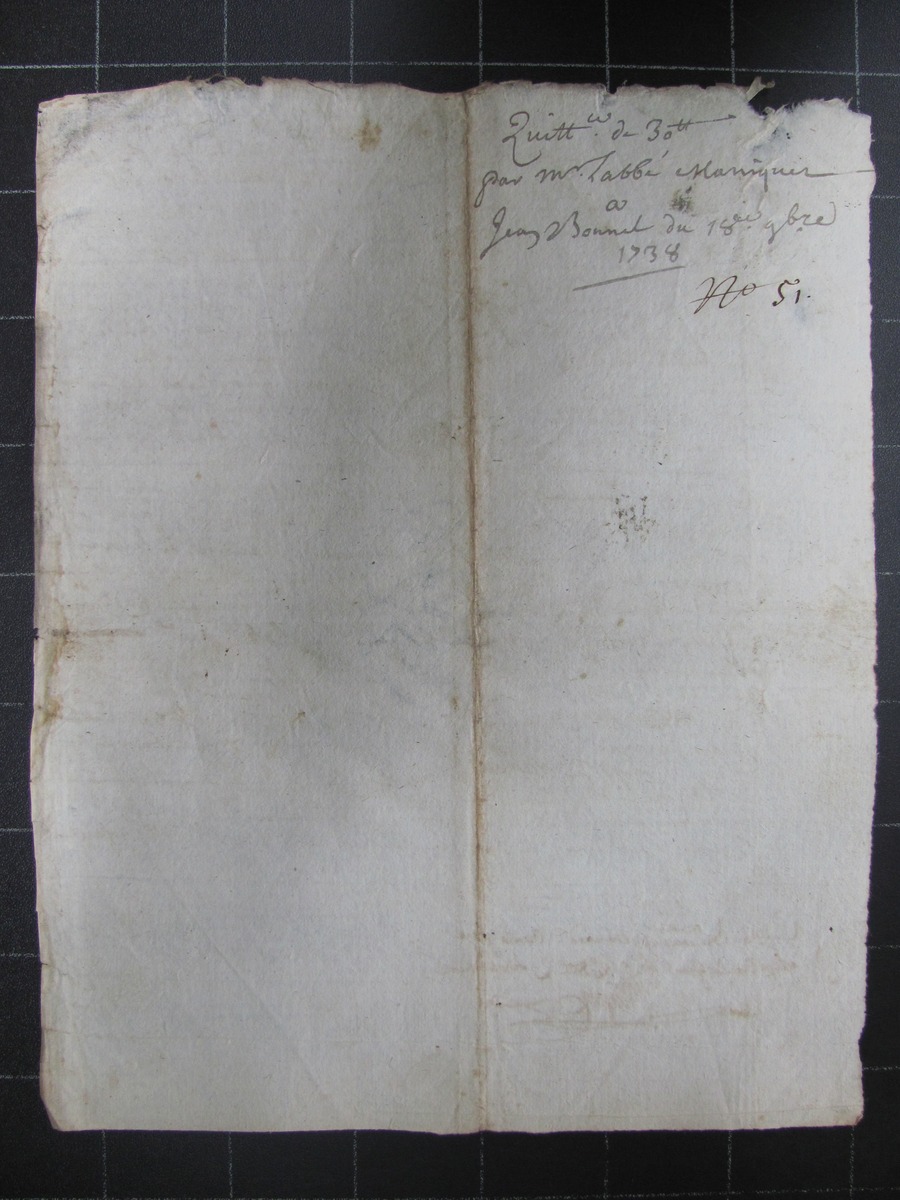 Quitt.ce de 30ll
par mr. Labbé Maniquet
a
Jean Bonnet du 18e 9bre
1738
No 51.